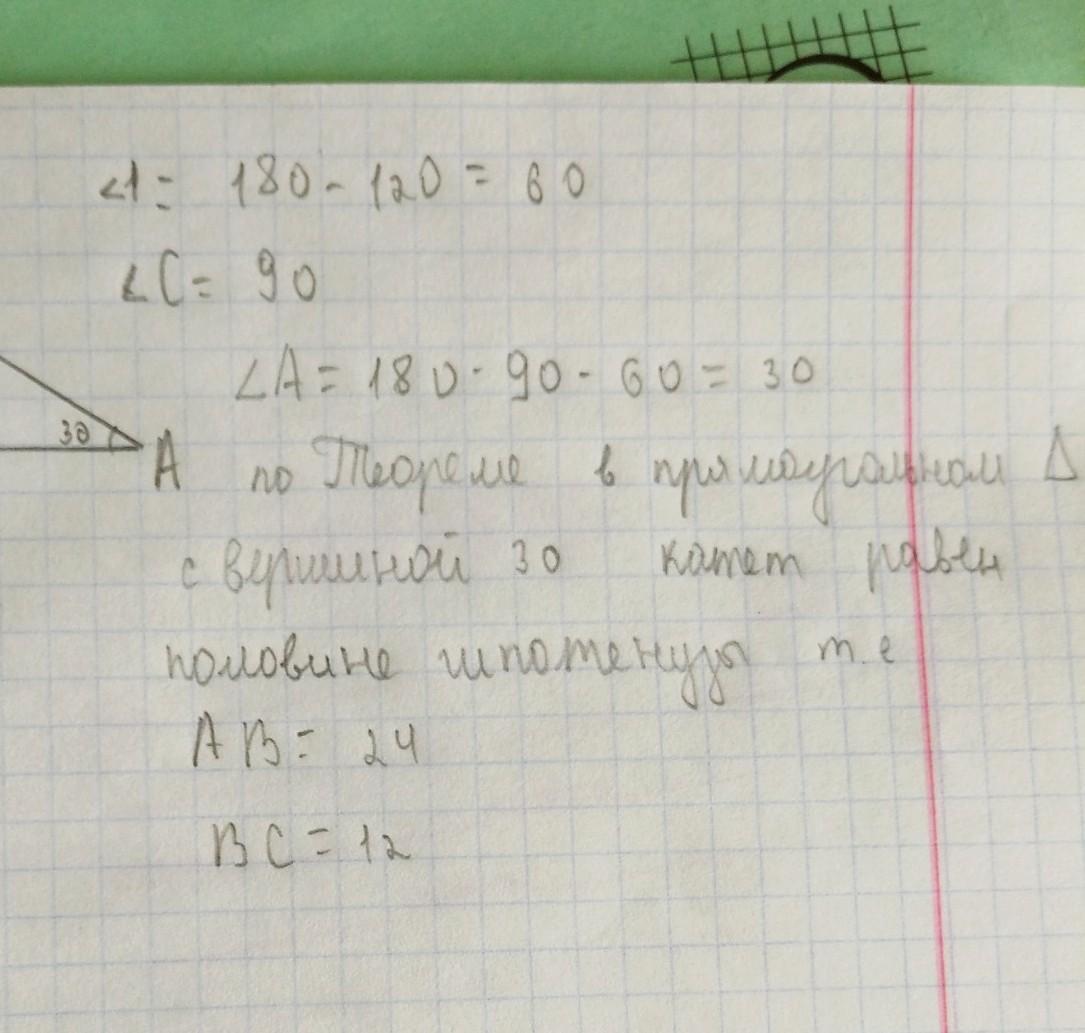 ∠1= 180 - 120 = 60
∠C= 90
∠A= 180 - 90 - 60 = 30
30
A по Теореме в прямоугольном Δ
с вершиной 30 катет равен
половине гипотенузы т.е
AB= 24
BC=12